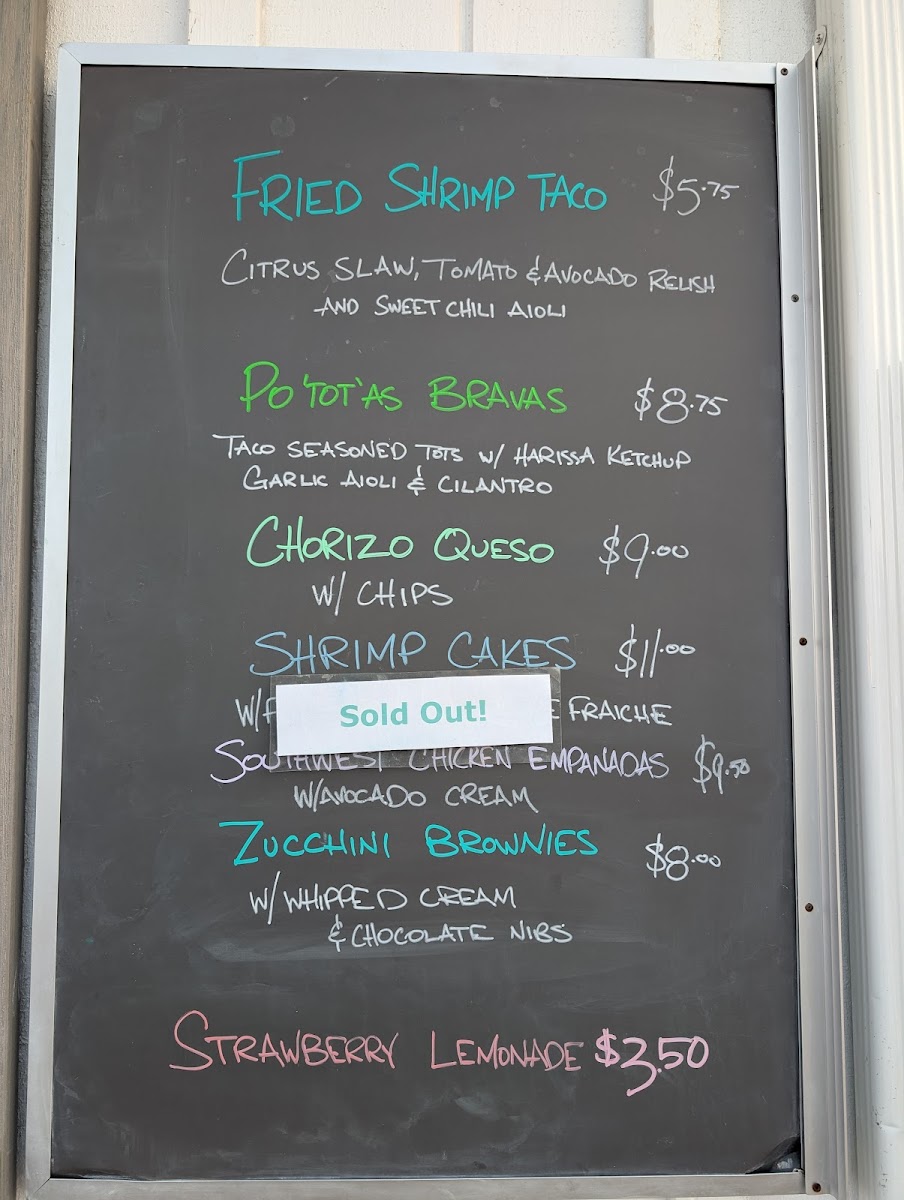 FRIED SHRIMP TACO $5.75
CITRUS SLAW, TOMATO & AVOCADO RELISH
AND SWEET CHILI AIOLI
PO'TOT'AS BRAVAS $8.75
TACO SEASONED TOTS W/ HARISSA KETCHUP
GARLIC AIOLI & CILANTRO
CHORIZO QUESO $9.00
W/ CHIPS
SHRIMP CAKES $11.00
W/ FRAICHE
Sold Out!
SOUTHWEST CHICKEN EMPANADAS $9.50
W/AVOCADO CREAM
ZUCCHINI BROWNIES $8.00
W/ WHIPPED CREAM
& CHOCOLATE NIBS
STRAWBERRY LEMONADE $3.50